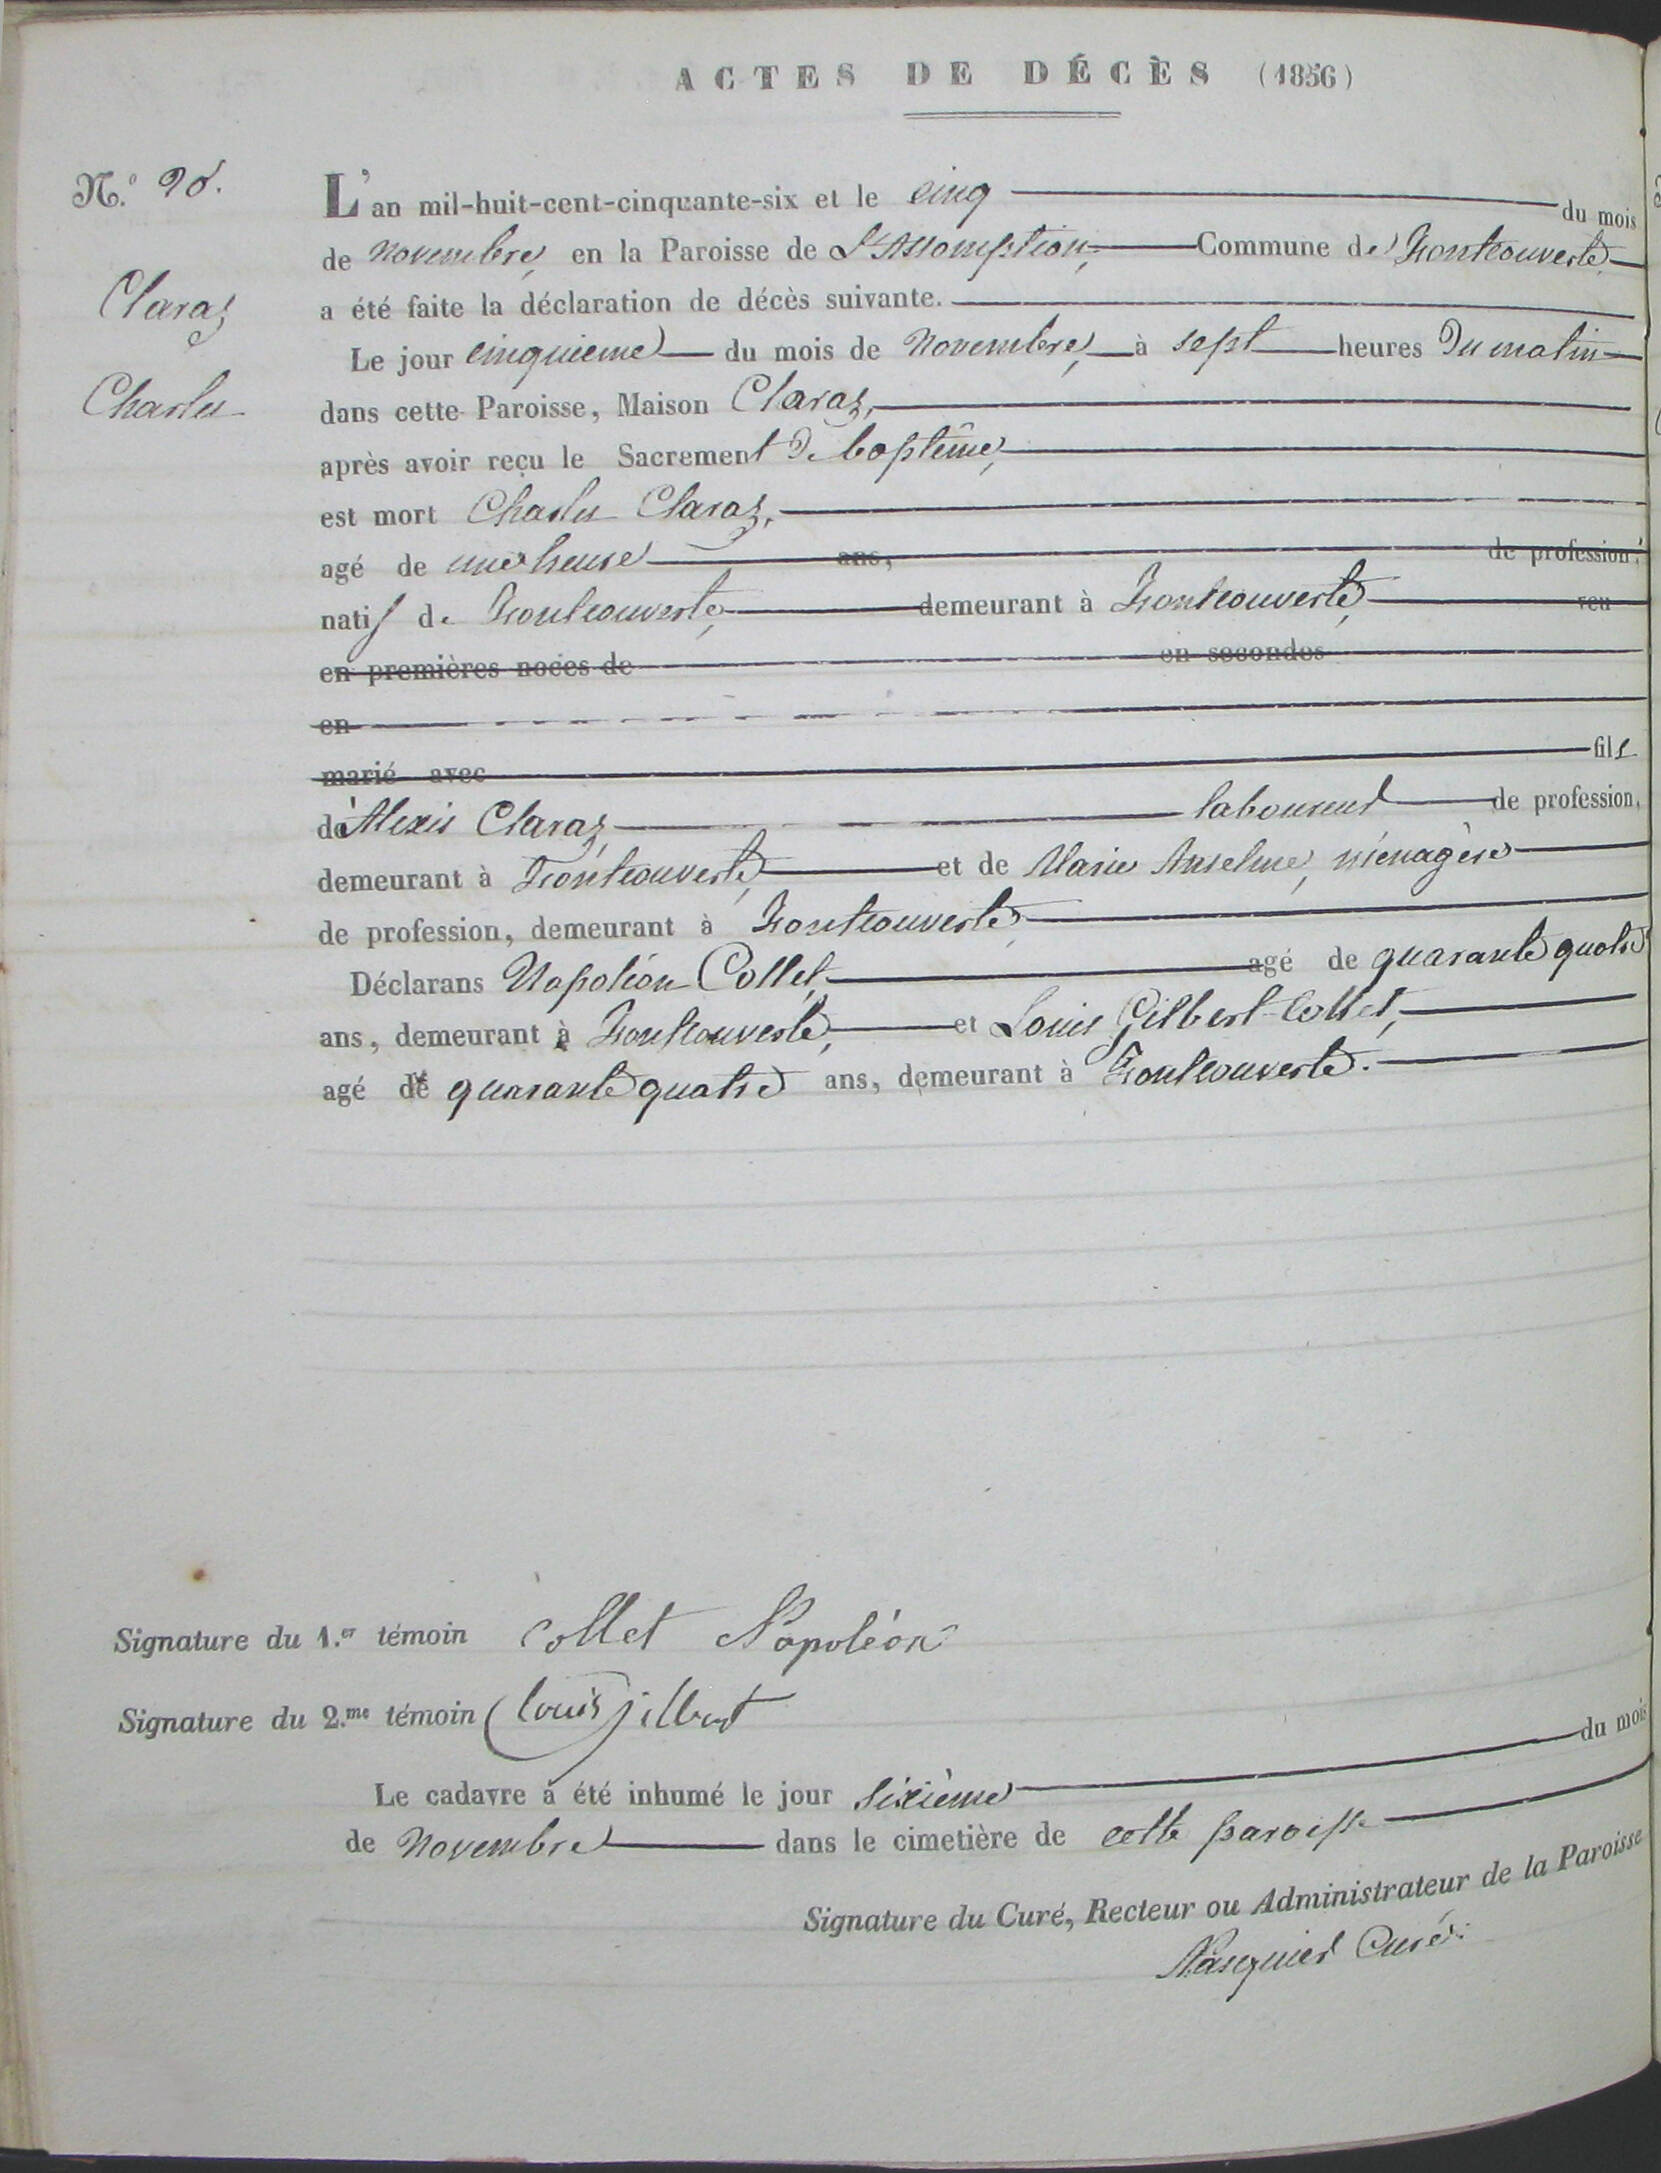 ACTES DE DÉCÈS (1856)
N.º 20.
L'an mil-huit-cent-cinquante-six et le cinq du mois
de novembre, en la Paroisse de L'Assomption, Commune de Montcouverte
Claraz
a été faite la déclaration de décès suivante.
Le jour cinquieme du mois de Novembre, à sept heures du matin
Charles
dans cette Paroisse, Maison Claraz,
après avoir reçu le Sacrement de baptême,
est mort Charles Claraz,
agé de une heure ans, de profession
natif de Montcouverte, demeurant à Montcouverte, veu
en premières noces de en secondes
en
marié avec fils
de Alexis Claraz, laboureur de profession,
demeurant à Montcouverte, et de Marie Anselme, ménagère
de profession, demeurant à Montcouverte
Déclarans Napoléon Collet, agé de quarante quatre
ans, demeurant à Montcouverte, et Louis Gilbert-Collet,
agé de quarante quatre ans, demeurant à Montcouverte.
Signature du 1.er témoin Collet Napoléon
Signature du 2.me témoin Louis jilbert
Le cadavre a été inhumé le jour sixième du mois
de Novembre dans le cimetière de cette paroisse
Signature du Curé, Recteur ou Administrateur de la Paroisse
Pasquier Curé.